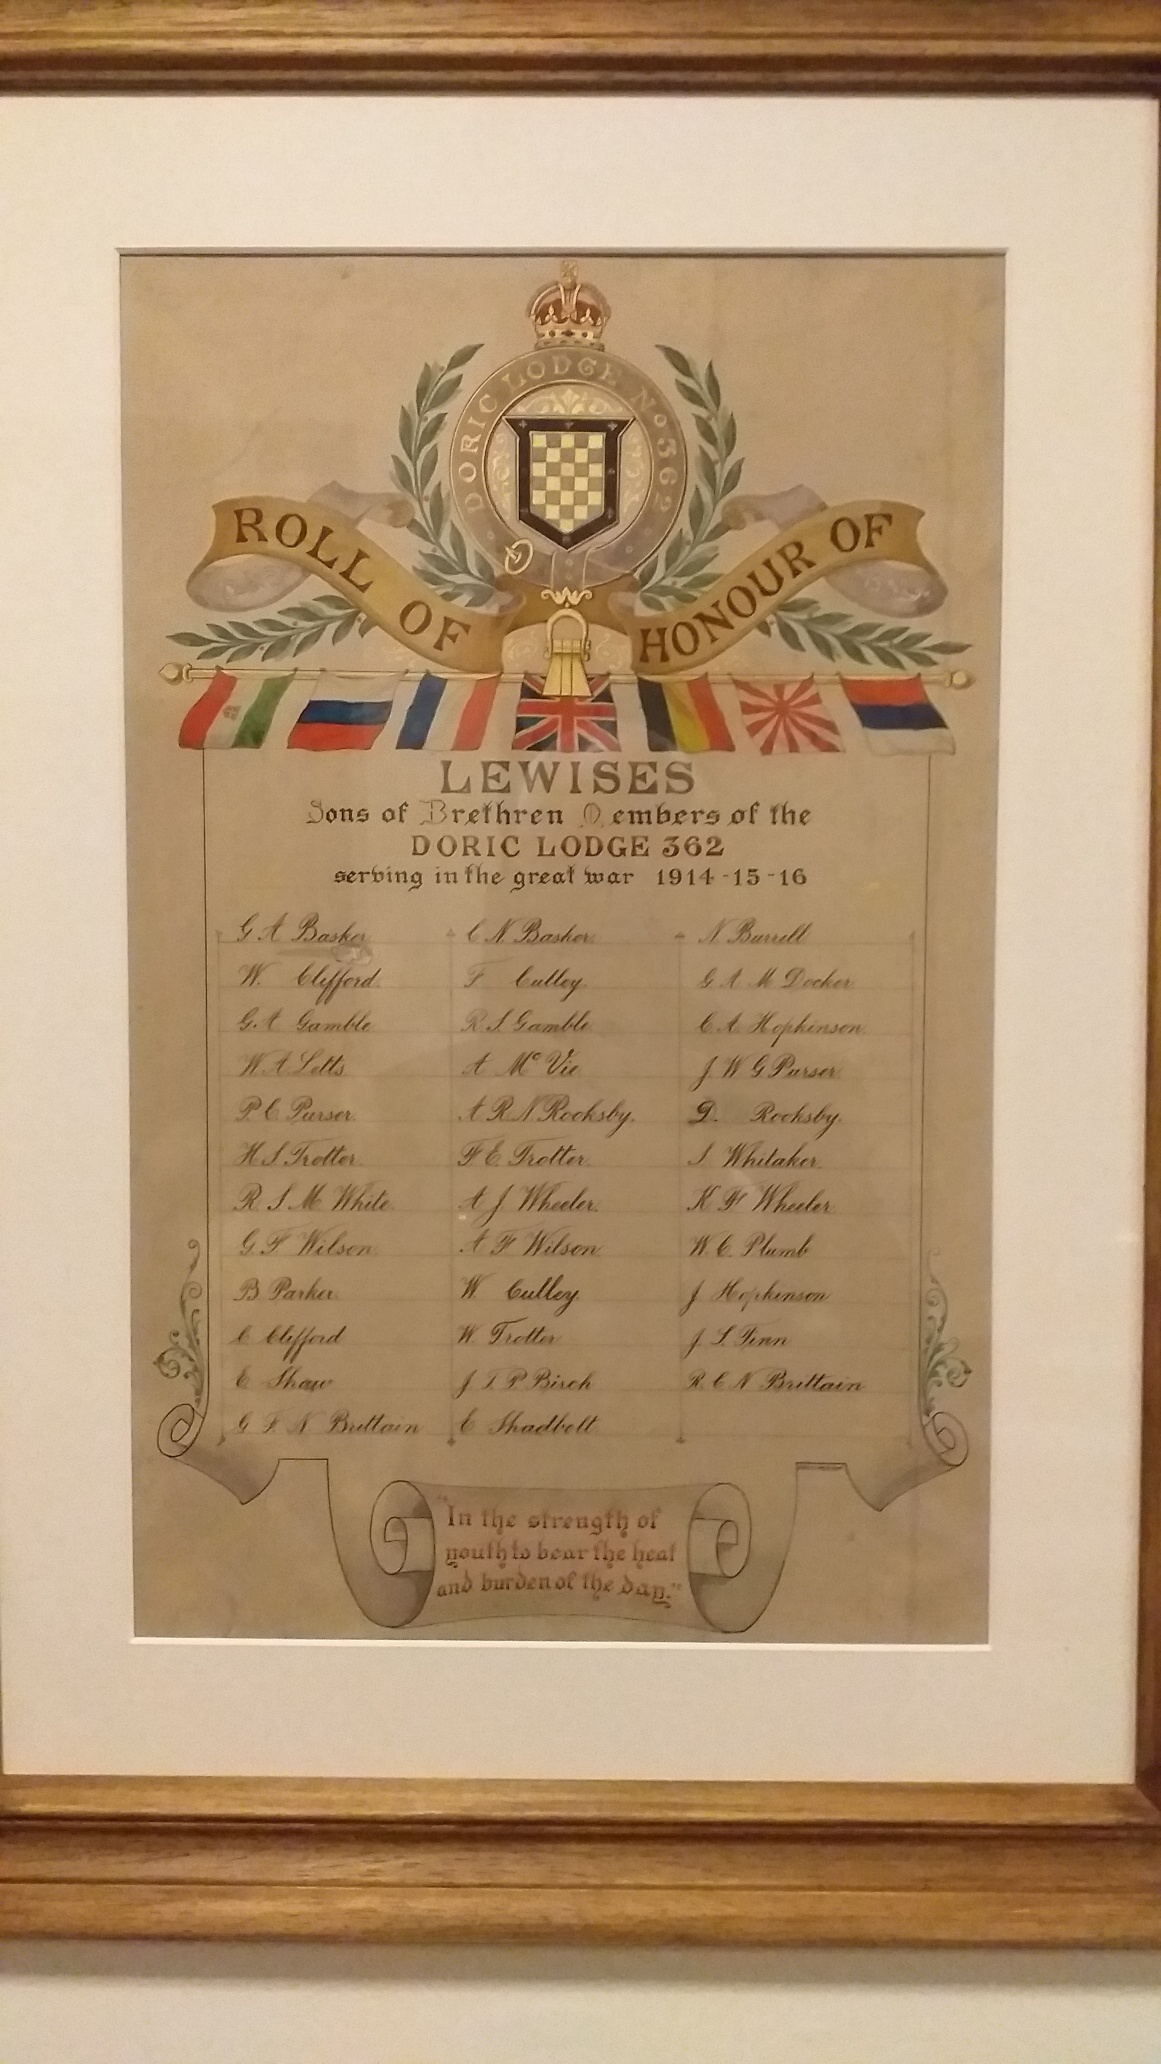 DORIC LODGE No 362
ROLL OF HONOUR OF
LEWISES
Sons of Brethren Members of the
DORIC LODGE 362
serving in the great war 1914-15-16
G A Basker C N Basker N Burrell
W. Clifford F Culley G A M Docker
G.A Gamble R S Gamble C A Hopkinson
W A Letts A Mc Vie J W G Purser
P C Purser A R N Rooksby. D. Rooksby.
H S Trotter F E Trotter S Whitaker
R S M White A J Wheeler K F Wheeler
G F Wilson A F Wilson W. C. Plumb
B. Parker W Culley J Hopkinson
C Clifford W. Trotter J. S. Tinn
E Shaw J T P Birch R C N Brittain
G F N Brittain E Shadbolt
"In the strength of
youth to bear the heat
and burden of the day."